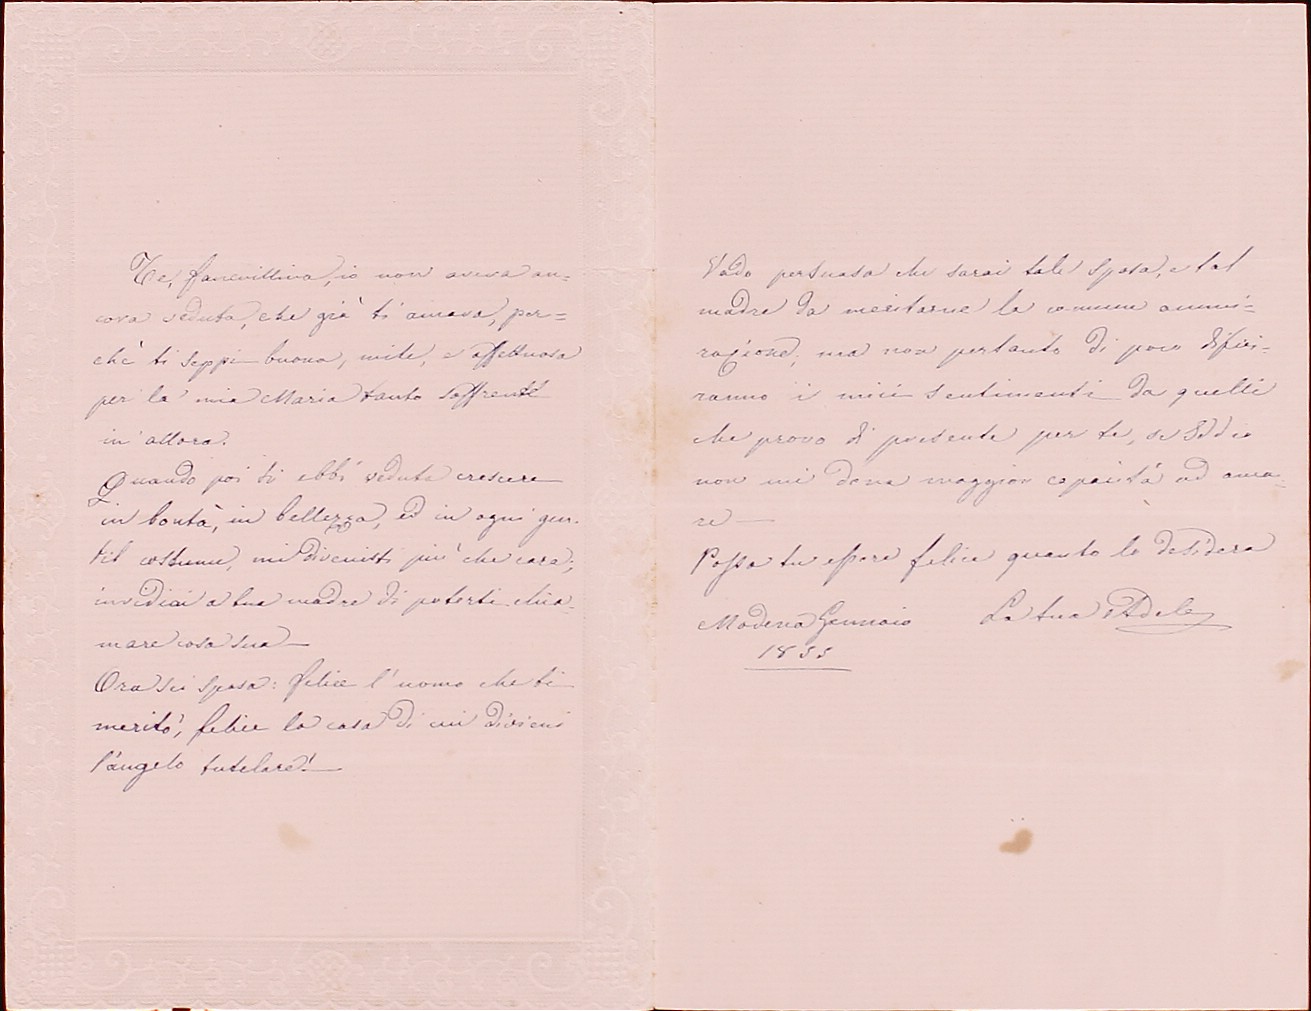 Te, fanciullina, io non aveva an=
cora veduta, che già ti amava, per=
chè ti seppi buona, mite, e affettuosa
per la mia Maria tanto soffrente
in allora.
Quando poi ti ebbi veduta crescere
in bontà, in bellezza, ed in ogni gen-
til costume, mi divenisti più che cara;
invidiai a tua madre di poterti chia-
mare cosa sua —
Ora sei sposa: felice l'uomo che ti
meritò, felice la casa di cui divieni
l'angelo tutelare! —
Vado persuasa che sarai tale sposa, e tal
madre da meritarne la comune ammi=
razione, ma non pertanto di poco diffe=
ranno i miei sentimenti da quelli
che provo di presente per te, se Iddio
non mi dona maggior capacità ad ama-
re —
Possa tu essere felice quanto lo desidera
Modena Gennaio La tua Adele
1855